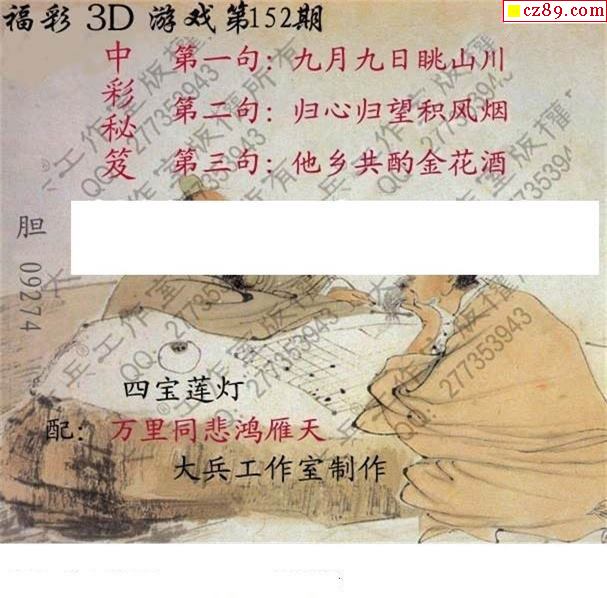 福彩 3D 游戏第152期
cz89.com
中彩秘笈
第一句：九月九日眺山川
第二句：归心归望积风烟
第三句：他乡共酌金花酒
胆 09274
四宝莲灯
配：万里同悲鸿雁天
大兵工作室制作
大兵工作室版權所有
QQ:277353943